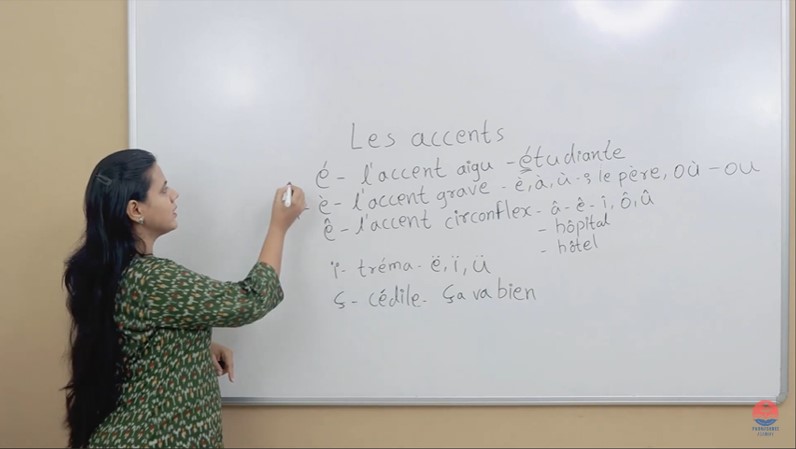 Les accents
é - l'accent aigu - étudiante
è - l'accent grave - è, à, ù - le père, où - ou
ê - l'accent circonflex - â - ê - î, ô, û
- hôpital
- hôtel
ï - tréma - ë, ï, ü
ç - cédile - ça va bien